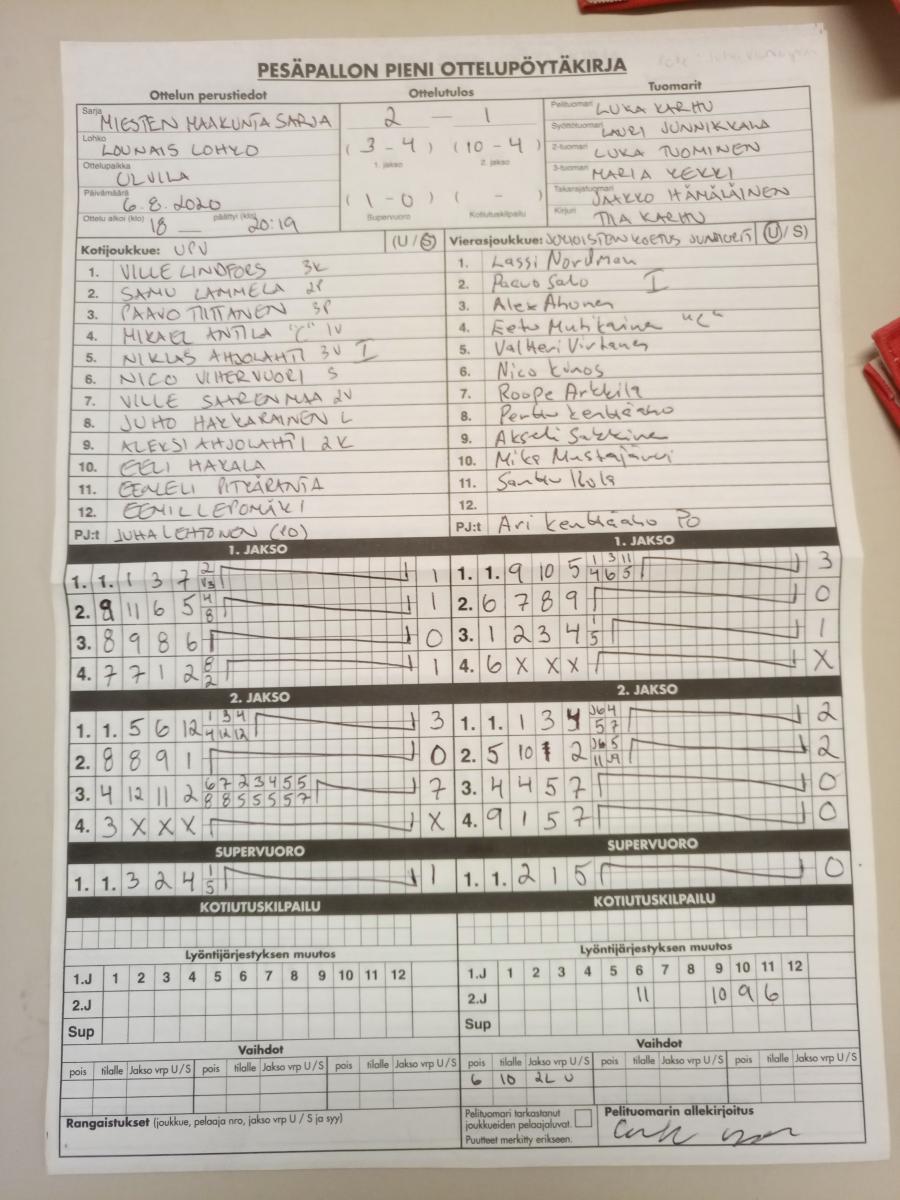 PESÄPALLON PIENI OTTELUPÖYTÄKIRJA
Ottelun perustiedot
Sarja MIESTEN MAAKUNTASARJA
Lohko LOUNAIS LOHKO
Ottelupaikka ULVILA
Päivämäärä 6.8.2020
Ottelu alkoi (klo) 18 päättyi (klo) 20:19
Ottelutulos
2 — 1
(3-4) (10-4)
1. jakso 2. jakso
(1-0) ( - )
Supervuoro Kotiutuskilpailu
Tuomarit
Pelituomari LUKA KARHU
Syöttötuomari LAURI JUNNIKKALA
2-tuomari LUKA TUOMINEN
3-tuomari MARIA KEKKI
Takarajatuomari JAAKKO HÄMÄLÄINEN
Kirjuri TIIA KARHU
Kotijoukkue: UPV (U/S)
1. VILLE LINDFORS 3K
2. SAMU LAMMELA 2P
3. PAAVO TIITTANEN 3P
4. MIKAEL ANTTILA "C" 1V
5. NIKLAS AHJOLAHTI 3V I
6. NICO VIHERVUORI S
7. VILLE SAARENMAA 2V
8. JUHO HAKKARAINEN L
9. ALEKSI AHJOLAHTI 2K
10. EELI HAKALA
11. EEMELI PITKÄRANTA
12. EEMIL LEPOMÄKI
PJ:t JUHA LEHTONEN (PO)
Vierasjoukkue: JUNIORIT (U/S)
1. Lassi Nordman
2. Paavo Salo I
3. Alex Ahonen
4. Eetu "C"
5. Valtteri Virtanen
6. Nico
7. Roope Arkkila
8. Perttu
9. Akseli
10. Mika Mustajärvi
11. Santtu
12.
PJ:t Ari PO
1. JAKSO
1. 1. 1 3 7 2 13 1
2. 9 11 6 5 4 8 1
3. 8 9 8 6 0
4. 7 7 1 2 8 2 1
1. JAKSO
1. 1. 9 10 5 1 3 11 4 6 5 3
2. 6 7 8 9 0
3. 1 2 3 4 1 5 1
4. 6 X X X X
2. JAKSO
1. 1. 5 6 12 1 3 4 4 12 12 3
2. 8 8 9 1 0
3. 4 12 11 2 6 7 2 3 4 5 5 8 8 5 5 5 5 7 7
4. 3 X X X X
2. JAKSO
1. 1. 1 3 4 4 5 7 2
2. 5 10 1 2 5 11 9 2
3. 4 4 5 7 0
4. 9 1 5 7 0
SUPERVUORO
1. 1. 3 2 4 1 5 1
SUPERVUORO
1. 1. 2 1 5 0
KOTIUTUSKILPAILU
KOTIUTUSKILPAILU
Lyöntijärjestyksen muutos
1.J 1 2 3 4 5 6 7 8 9 10 11 12
2.J
Sup
Lyöntijärjestyksen muutos
1.J 1 2 3 4 5 6 7 8 9 10 11 12
2.J 11 10 9 6
Sup
Vaihdot
pois tilalle Jakso vrp U/S pois tilalle Jakso vrp U/S pois tilalle Jakso vrp U/S
Vaihdot
pois tilalle Jakso vrp U/S pois tilalle Jakso vrp U/S pois tilalle Jakso vrp U/S
6 10 2L U
Rangaistukset (joukkue, pelaaja nro, jakso vrp U / S ja syy)
Pelituomari tarkastanut
joukkueiden pelaajaluvat.
Puutteet merkitty erikseen.
Pelituomarin allekirjoitus